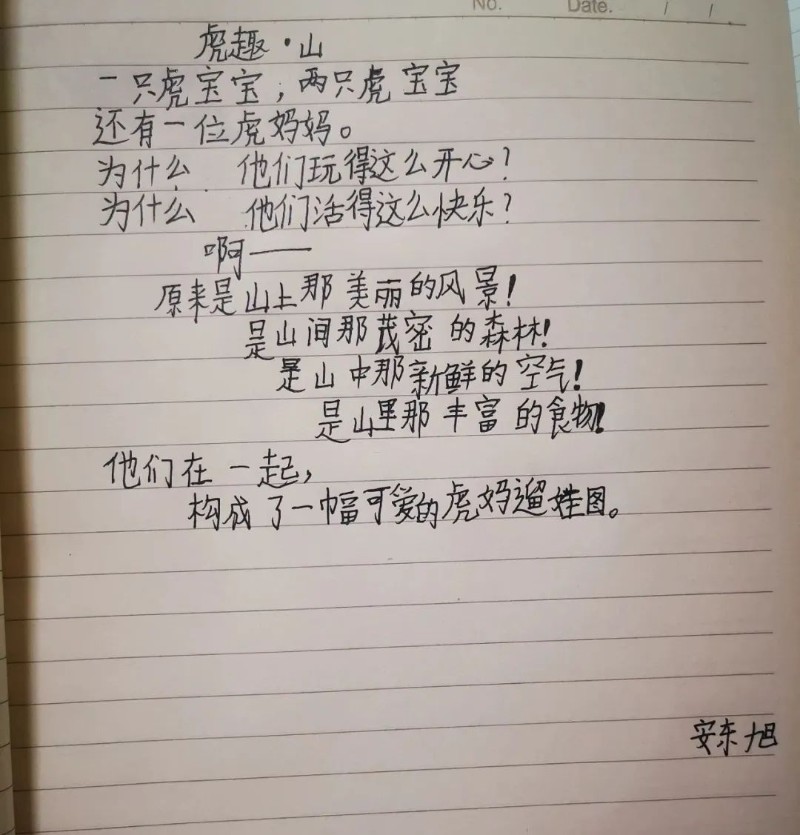 No. Date. / /
虎趣·山
一只虎宝宝，两只虎宝宝
还有一位虎妈妈。
为什么 他们玩得这么开心？
为什么 他们活得这么快乐？
啊——
原来是山上那美丽的风景！
是山间那茂密的森林！
是山中那新鲜的空气！
是山里那丰富的食物！
他们在一起，
构成了一幅可爱的虎妈遛娃图。
安东旭